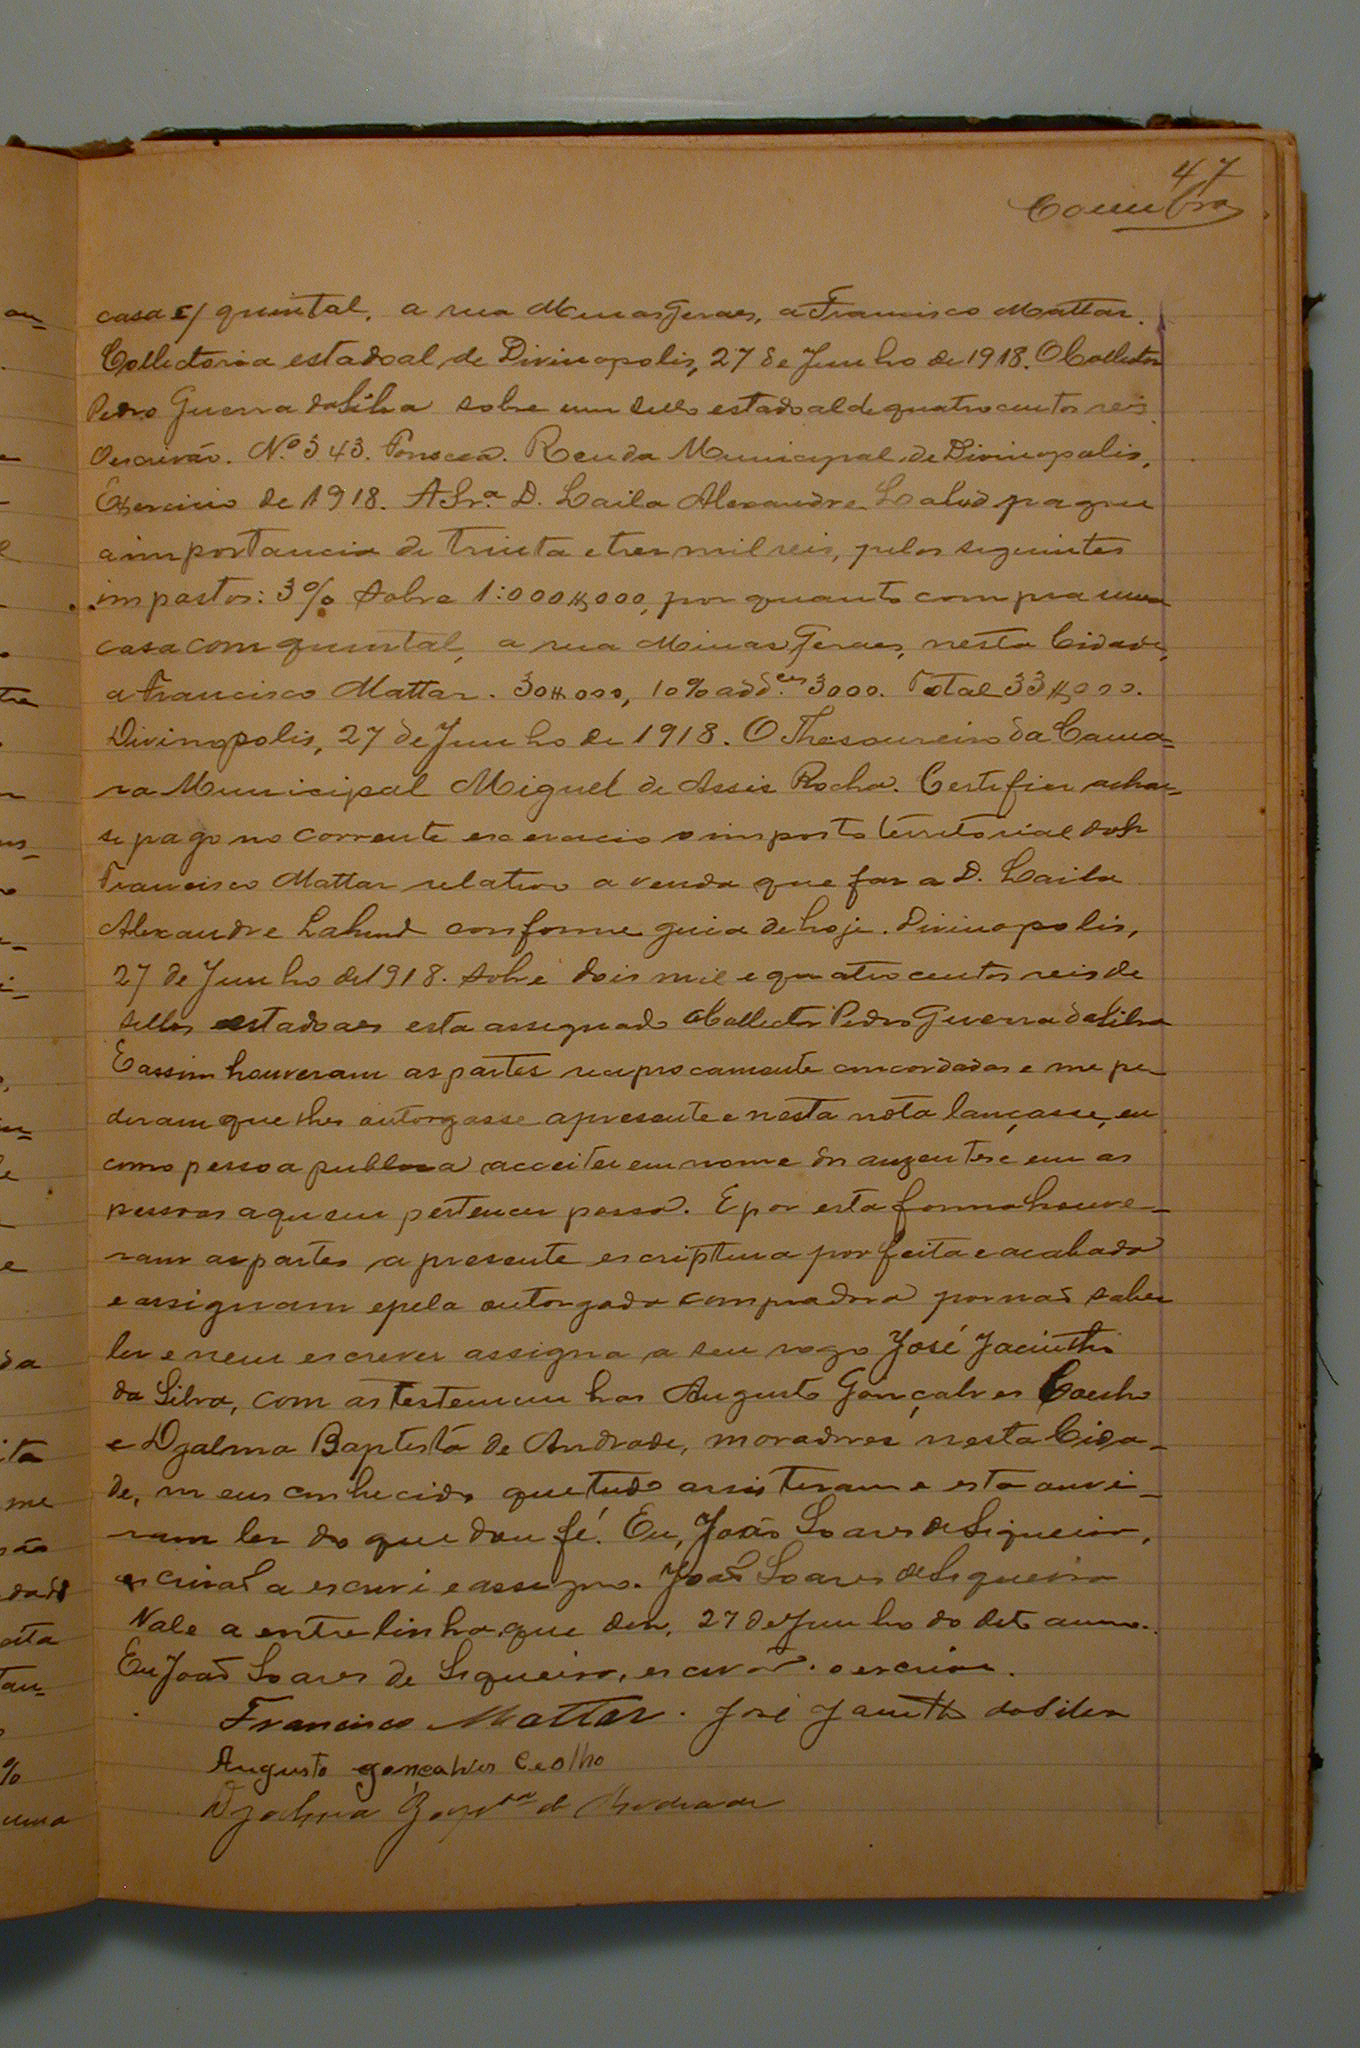 47
Coimbra
casa c/ quintal, a rua Minas Geraes, a Francisco Mattar.
Collectoria estadoal de Divinopolis, 27 de Junho de 1918. O Collector
Pedro Guerra da Silva sobre um sello estadoal de quatrocentos reis
O escrivão. Nº 343. Fonseca. Renda Municipal de Divinopolis,
Exercicio de 1918. A Snr.ª D. Laila Alexandre Lahud pagou
a importancia de trinta e tres mil reis, pelos seguintes
impostos: 3% sobre 1:000$000, por quanto compra uma
casa com quintal, a rua Minas Geraes, nesta Cidade,
a Francisco Mattar. 30$000, 10% add.es 3000. Total 33$000.
Divinopolis, 27 de Junho de 1918. O Thesoureiro da Cama=
ra Municipal Miguel de Assis Rocha. Certifico achar=
se pago no corrente exercicio o imposto territorial do Sr
Francisco Mattar relativo a venda que faz a D. Laila
Alexandre Lahud conforme guia de hoje. Divinopolis,
27 de Junho de 1918. Sobre dois mil e quatrocentos reis de
sellos estadoaes esta assignado O Collector Pedro Guerra da Silva
E assim houveram as partes reciprocamente concordados e me pe-
deram que lhes outorgasse a presente e nesta nota lançasse, eu
como pessoa publica acceitei em nome dos auzentes e em as
pessoas a quem pertencer possa. E por esta forma houve-
ram as partes a presente escriptura por feita e acabada
e assignam e pela outorgada compradora por não saber
ler e nem escrever assigna a seu rogo José Jacintho
da Silva, com as testemunhas Augusto Gonçalves Coelho
e Djalma Baptista de Andrade, moradores nesta Cida-
de, meus conhecidos que tudo assisteram e esta ouvi-
ram ler do que dou fé. Eu, João Soares de Siqueira,
escrivão a escrevi e assigno. João Soares de Siqueira
Vale a entrelinha que diz, 27 de Junho do dito anno.
Eu João Soares de Siqueira, escrivão o escrevi.
Francisco Mattar. José Jacintho da Silva
Augusto gonçalves Ceolho
Djalma Bapta de Andrade